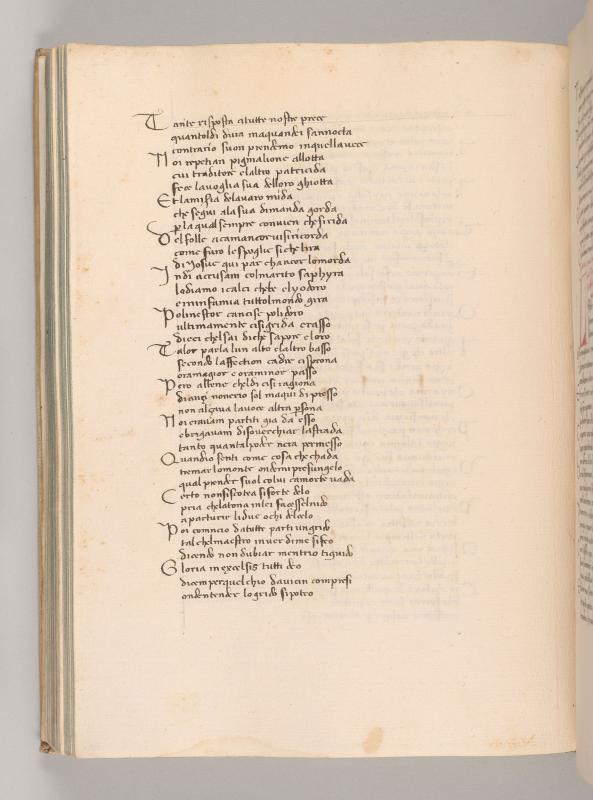 Tante risposta atutte nostre prece
quantoldi dura maquandei sannocta
contrario suon prendemo inquellauece
Noi repetian pigmalione allotta
cui traditore elaltro patricida
fece lauoglia sua delloro ghiotta
Et lamisia delauaro mida
che segui ala sua dimanda gorda
pla qual sempre conuien chesirida
Del folle acamancor uisi ricorda
come furo lespoglie si chelira
di Josue qui par chancor lomorda
Indi accusam colmarito saphyra
lodiamo icalci chebe elyodoro
et in infamia tuttolmondo gira
Polinestor cancise polidoro
ultimamente cisi grida crasso
dicci chelsai diche sapore eloro
Talor parla lun alto elaltro basso
secondo laffection cadir cisprona
ora magior e ora minor passo
Pero albene cheldi cisi ragiona
dianzi nonerio sol maqui dipresso
non alçaua lauoce altra psona
Noi erauam partiti gia da esso
e brigauam disouerchiar lastrada
tanto quantalpoder nera permesso
Quandio senti come cosa chechada
tremar lomonte ondemi presungelo
qual prender suol colui camorte uada
Certo nonsiscotea siforte delo
pria chelatona inlei facessel nido
a parturir lidue ochi delcielo
Poi comincio datutte parti ungrido
tal chelmaestro inuer dime sifeo
dicendo non dubiar mentrio tiguido
Gloria inexcelsis tutti deo
dicean perquelchio dauicin compresi
ondentender logrido sipoteo